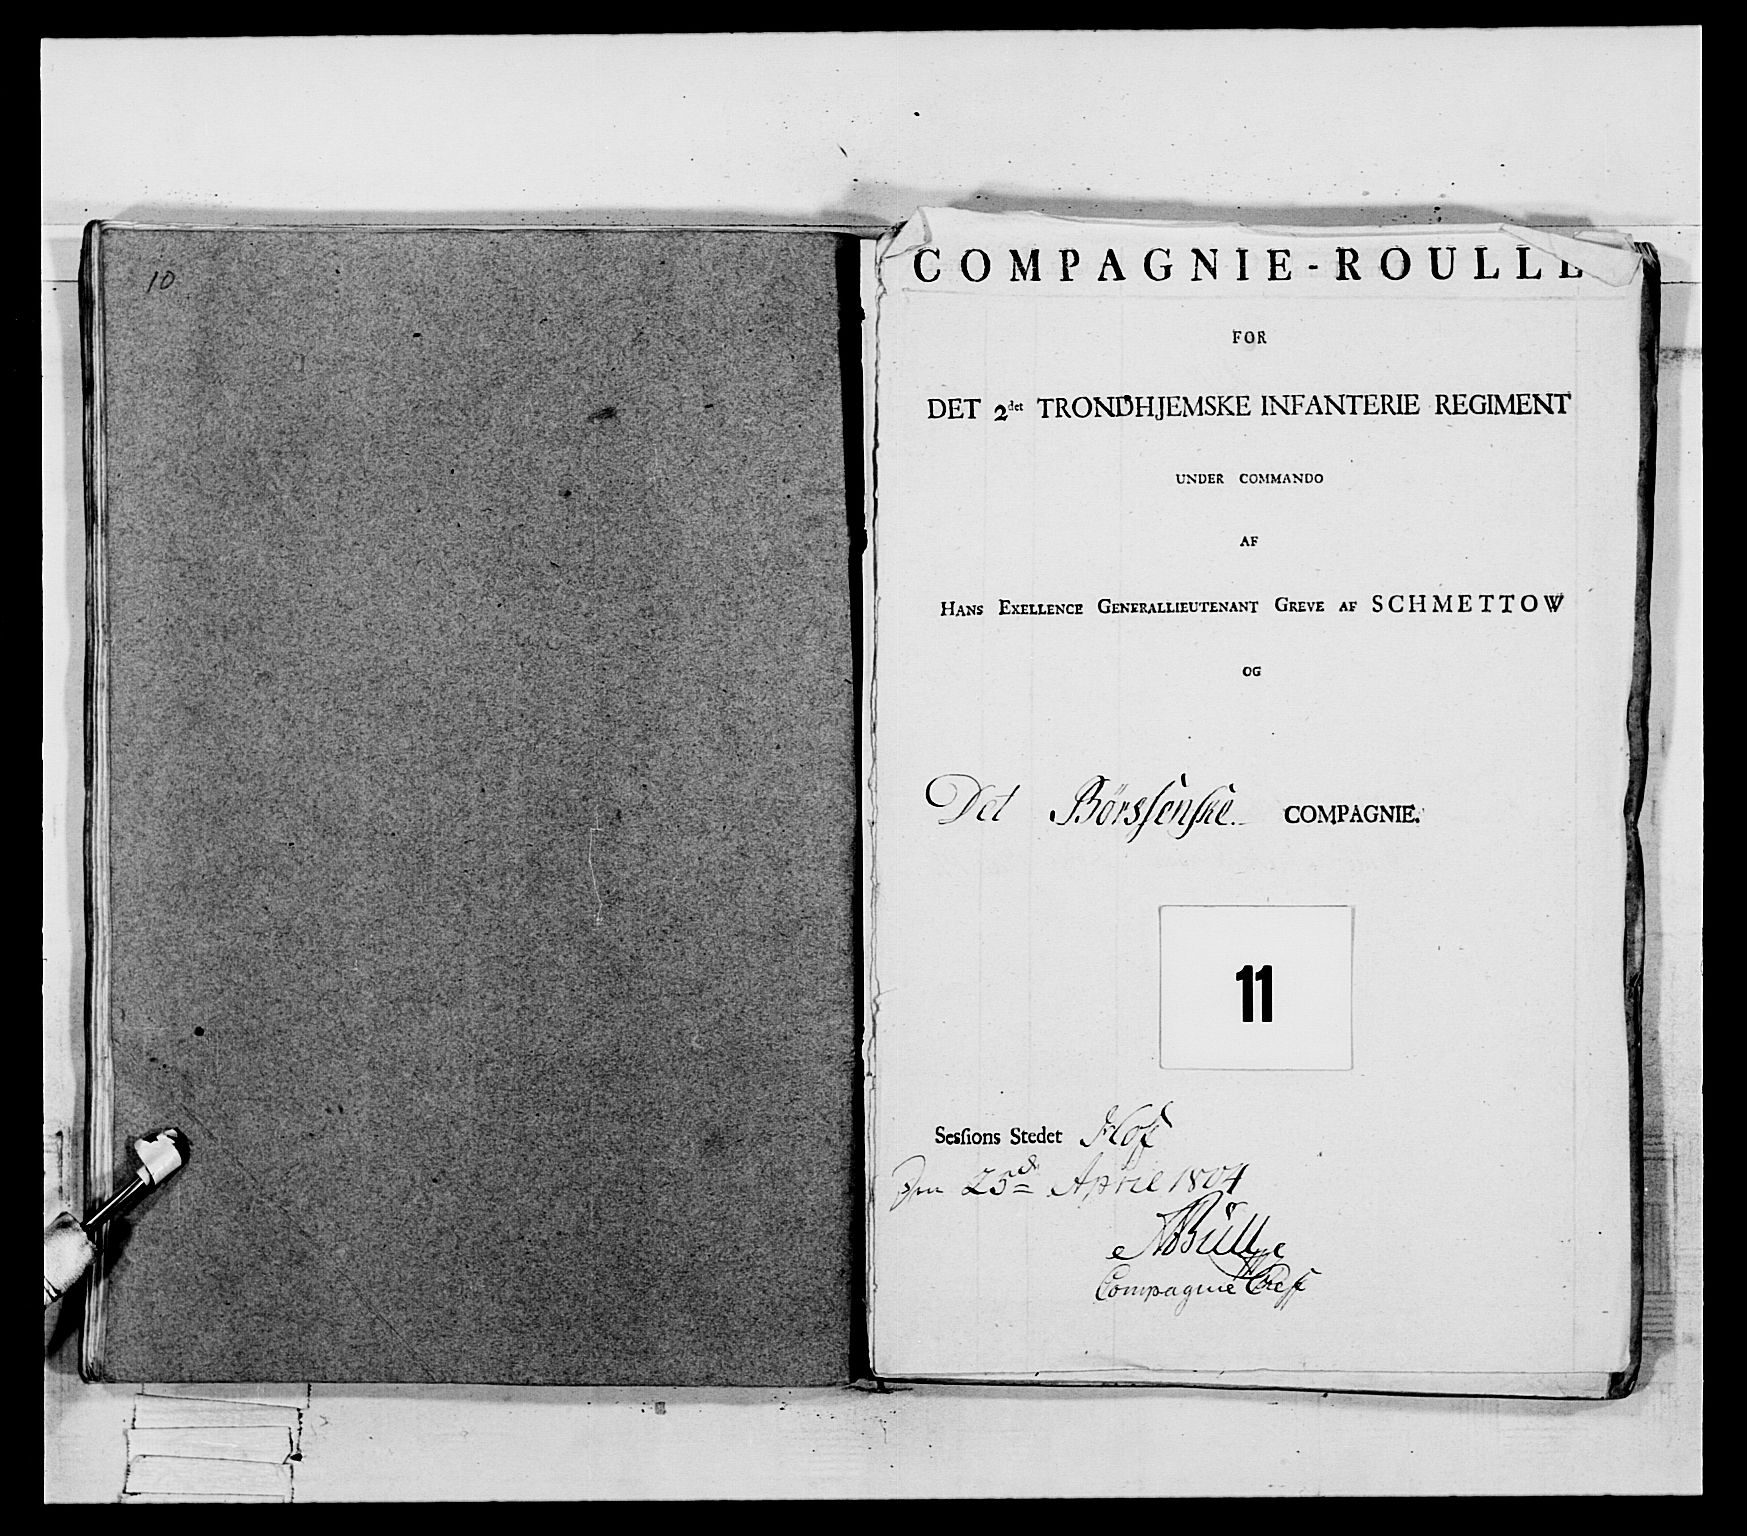 10
COMPAGNIE-ROULLE
FOR
DET 2det TRONDHJEMSKE INFANTERIE REGIMENT
UNDER COMMANDO
AF
HANS EXELLENCE GENERALLIEUTENANT GREVE AF SCHMETTOW
OG
Det Börssenske COMPAGNIE.
11
Sesſions Stedet Hof
Den 25d April 1804
Büll
Compagnie Chef